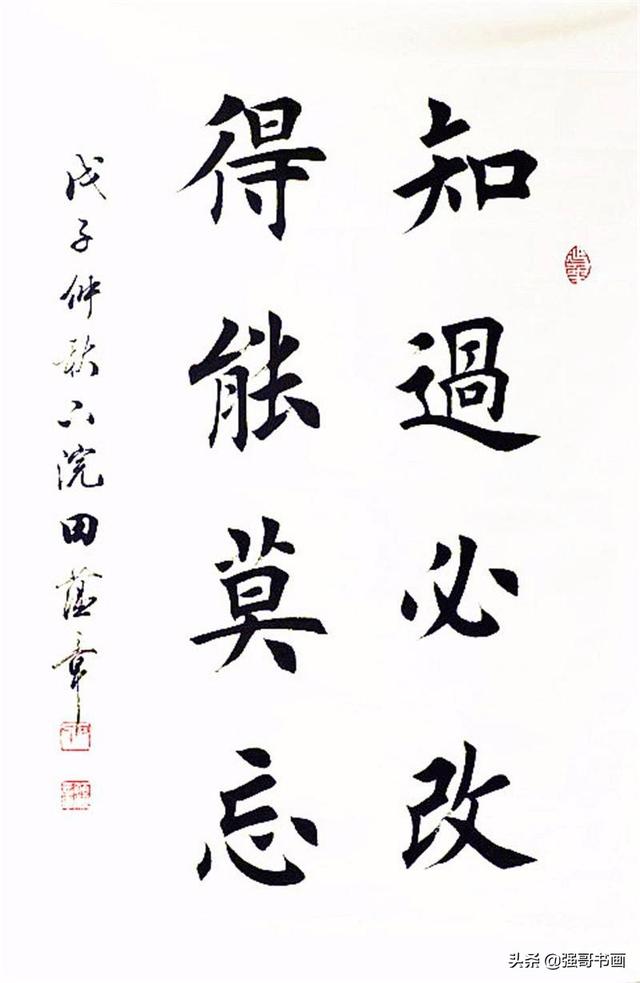 知過必改
得能莫忘
戊子仲秋六院田蘊章
头条 @强哥书画